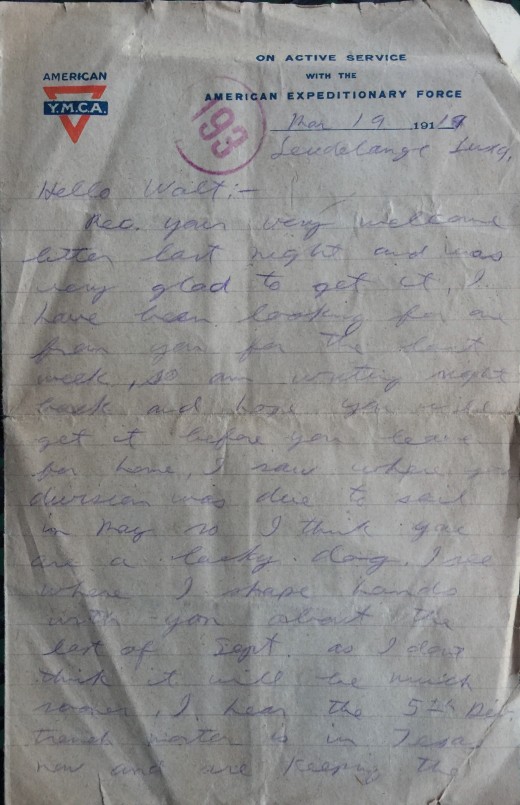 ON ACTIVE SERVICE
WITH THE
AMERICAN EXPEDITIONARY FORCE
AMERICAN
Y.M.C.A.
193
Mar 19 1919
Leudelange Luxg,
Hello Walt:-
Rec. your very welcome
letter last night and was
very glad to get it, I
have been looking for one
from you for the last
week, so am writing right
back and hope you will
get it before you leave
for home, I saw where your
division was due to sail
in May so I think you
are a lucky dog. I see
where I shape hands
with you about the
last of Sept. as I don't
think it will be much
sooner, I hear the 5th Div
trench mortar is in Texas
now and are keeping the